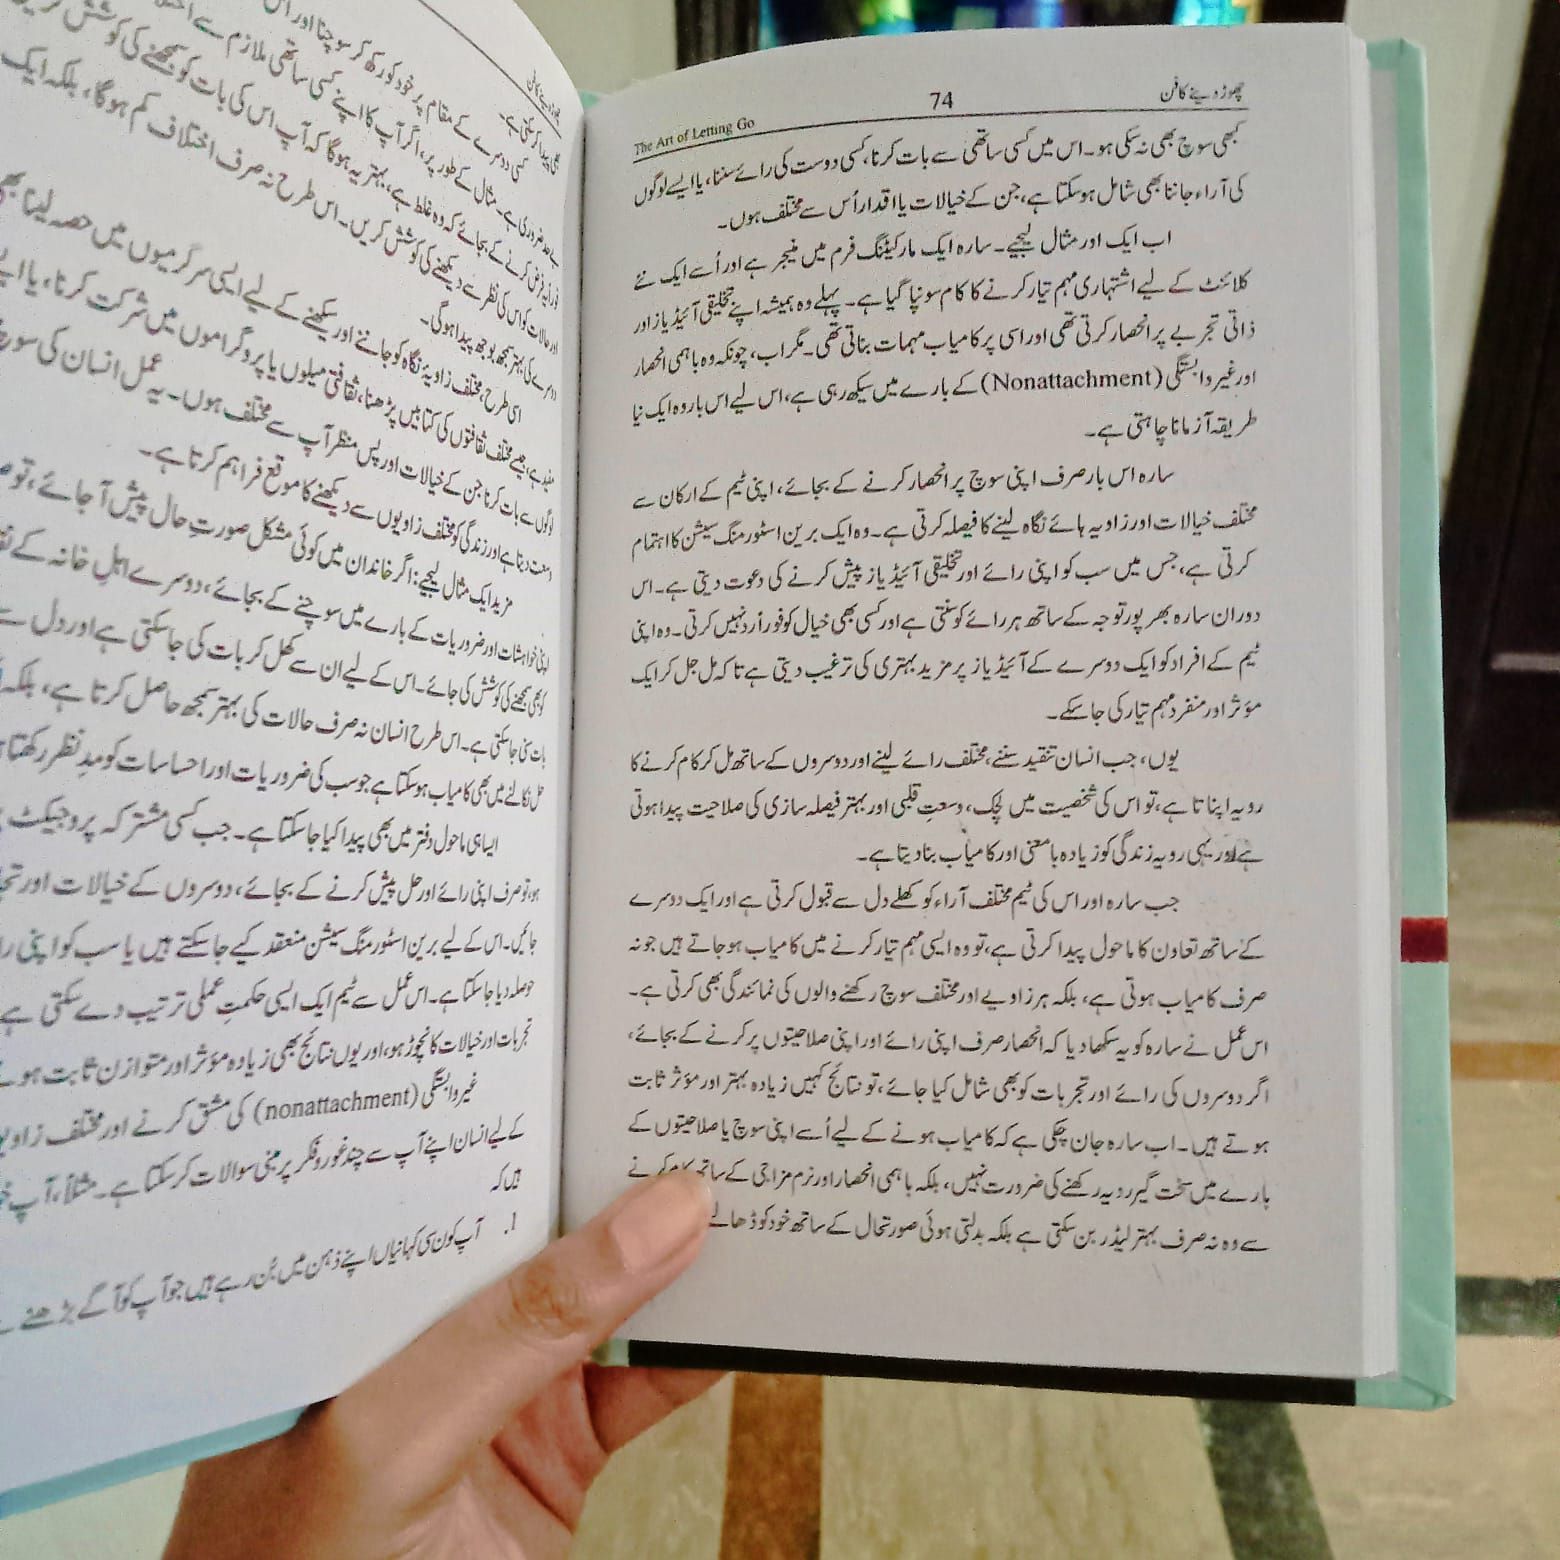 چھوڑ دینے کا فن 74 The Art of Letting Go
کبھی سوچ بھی نہ سکی ہو۔ اس میں کسی ساتھی سے بات کرنا، کسی دوست کی رائے سننا، یا ایسے لوگوں
کی آراء جاننا بھی شامل ہو سکتا ہے، جن کے خیالات یا اقدار اُس سے مختلف ہوں۔
اب ایک اور مثال لیجیے۔ سارہ ایک مارکیٹنگ فرم میں منیجر ہے اور اُسے ایک نئے
کلائنٹ کے لیے اشتہاری مہم تیار کرنے کا کام سونپا گیا ہے۔ پہلے وہ ہمیشہ اپنے تخلیقی آئیڈیاز اور
ذاتی تجربے پر انحصار کرتی تھی اور اسی پر کامیاب مہمات بناتی تھی۔ مگر اب، چونکہ وہ باہمی انحصار
اور غیر وابستگی (Nonattachment) کے بارے میں سیکھ رہی ہے، اس لیے اس بار وہ ایک نیا
طریقہ آزمانا چاہتی ہے۔
سارہ اس بار صرف اپنی سوچ پر انحصار کرنے کے بجائے، اپنی ٹیم کے ارکان سے
مختلف خیالات اور زاویہ ہائے نگاہ لینے کا فیصلہ کرتی ہے۔ وہ ایک برین اسٹورمنگ سیشن کا اہتمام
کرتی ہے، جس میں سب کو اپنی رائے اور تخلیقی آئیڈیاز پیش کرنے کی دعوت دیتی ہے۔ اس
دوران سارہ بھرپور توجہ کے ساتھ ہر رائے کو سنتی ہے اور کسی بھی خیال کو فوراً رد نہیں کرتی۔ وہ اپنی
ٹیم کے افراد کو ایک دوسرے کے آئیڈیاز پر مزید بہتری کی ترغیب دیتی ہے تاکہ مل جل کر ایک
مؤثر اور منفرد مہم تیار کی جا سکے۔
یوں، جب انسان تنقید سننے، مختلف رائے لینے اور دوسروں کے ساتھ مل کر کام کرنے کا
رویہ اپناتا ہے، تو اس کی شخصیت میں لچک، وسعتِ قلبی اور بہتر فیصلہ سازی کی صلاحیت پیدا ہوتی
ہے اور یہی رویہ زندگی کو زیادہ بامعنی اور کامیاب بنا دیتا ہے۔
جب سارہ اور اس کی ٹیم مختلف آراء کو کھلے دل سے قبول کرتی ہے اور ایک دوسرے
کے ساتھ تعاون کا ماحول پیدا کرتی ہے، تو وہ ایسی مہم تیار کرنے میں کامیاب ہو جاتے ہیں جو نہ
صرف کامیاب ہوتی ہے، بلکہ ہر زاویے اور مختلف سوچ رکھنے والوں کی نمائندگی بھی کرتی ہے۔
اس عمل نے سارہ کو یہ سکھا دیا کہ انحصار صرف اپنی رائے اور اپنی صلاحیتوں پر کرنے کے بجائے،
اگر دوسروں کی رائے اور تجربات کو بھی شامل کیا جائے، تو نتائج کہیں زیادہ بہتر اور مؤثر ثابت
ہوتے ہیں۔ اب سارہ جان چکی ہے کہ کامیاب ہونے کے لیے اُسے اپنی سوچ یا صلاحیتوں کے
بارے میں سخت گیر رویہ رکھنے کی ضرورت نہیں، بلکہ باہمی انحصار اور نرم مزاجی کے ساتھ کام کرنے
سے وہ نہ صرف بہتر لیڈر بن سکتی ہے بلکہ بدلتی ہوئی صورتحال کے ساتھ خود کو ڈھالنے
چھوڑ دینے کا فن
کسی دوسرے کے مقام پر خود کو رکھ کر سوچنا اور اس
بے حد ضروری ہے۔ مثال کے طور پر، اگر آپ کا اپنے کسی ساتھی ملازم سے
فوراً یہ فرض کرنے کے بجائے کہ وہ غلط ہے، بہتر یہ ہوگا کہ آپ اس کی بات کو سمجھنے کی کوشش
اور حالات کو اس کی نظر سے دیکھنے کی کوشش کریں۔ اس طرح نہ صرف اختلاف کم ہوگا، بلکہ ایک
دوسرے کی بہتر سمجھ بوجھ پیدا ہوگی۔
اسی طرح، مختلف زاویۂ نگاہ کو جاننے اور سیکھنے کے لیے ایسی سرگرمیوں میں حصہ لینا بھی
مفید ہے، جیسے مختلف ثقافتوں کی کتابیں پڑھنا، ثقافتی میلوں یا پروگراموں میں شرکت کرنا، یا ایسے
لوگوں سے بات کرنا جن کے خیالات اور پس منظر آپ سے مختلف ہوں۔ یہ عمل انسان کی سوچ
وسعت دیتا ہے اور زندگی کو مختلف زاویوں سے دیکھنے کا موقع فراہم کرتا ہے۔
مزید ایک مثال لیجیے: اگر خاندان میں کوئی مشکل صورتِ حال پیش آ جائے، تو
اپنی خواہشات اور ضروریات کے بارے میں سوچنے کے بجائے، دوسرے اہلِ خانہ کے
کو بھی سمجھنے کی کوشش کی جائے۔ اس کے لیے ان سے کھل کر بات کی جا سکتی ہے اور دل سے
بات سنی جا سکتی ہے۔ اس طرح انسان نہ صرف حالات کی بہتر سمجھ حاصل کرتا ہے، بلکہ
حل نکالنے میں بھی کامیاب ہو سکتا ہے جو سب کی ضروریات اور احساسات کو مدِ نظر رکھتا
ایسا ہی ماحول دفتر میں بھی پیدا کیا جا سکتا ہے۔ جب کسی مشترکہ پروجیکٹ
ہو، تو صرف اپنی رائے اور حل پیش کرنے کے بجائے، دوسروں کے خیالات اور
جائیں۔ اس کے لیے برین اسٹورمنگ سیشن منعقد کیے جا سکتے ہیں یا سب کو اپنی
حوصلہ دیا جا سکتا ہے۔ اس عمل سے ٹیم ایک ایسی حکمتِ عملی ترتیب دے سکتی ہے
تجربات اور خیالات کا نچوڑ ہو، اور یوں نتائج بھی زیادہ مؤثر اور متوازن ثابت
غیر وابستگی (nonattachment) کی مشق کرنے اور مختلف
کے لیے انسان اپنے آپ سے چند غور و فکر پر مبنی سوالات کر سکتا ہے۔ مثلاً، آپ
ہیں کہ
1. آپ کون سی کہانیاں اپنے ذہن میں بُن رہے ہیں جو آپ کو آگے بڑھنے